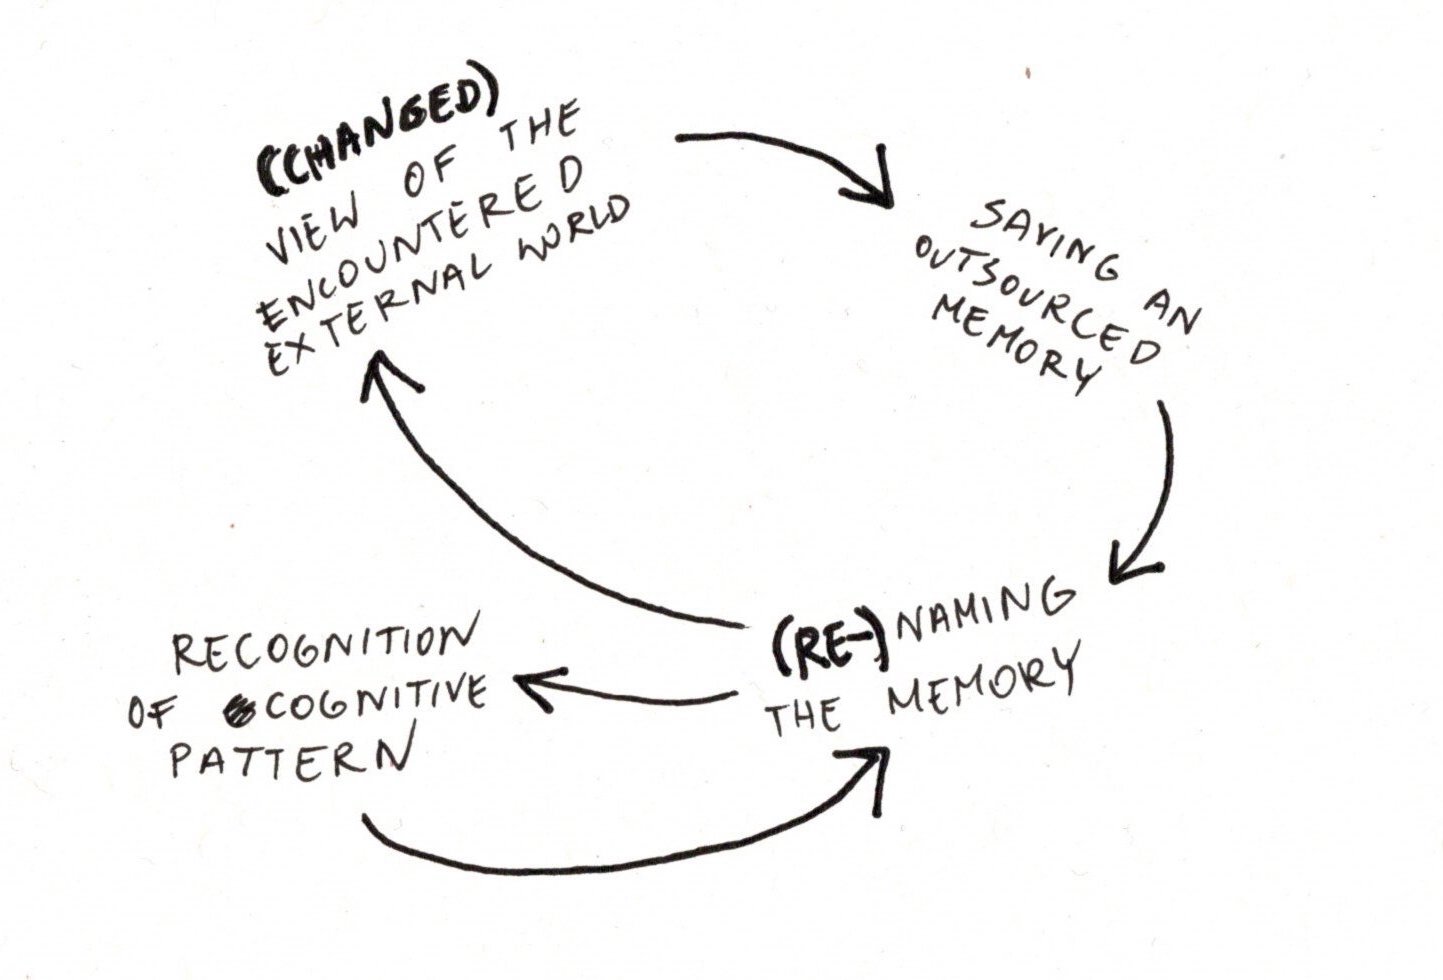 (CHANGED)
VIEW OF THE
ENCOUNTERED
EXTERNAL WORLD
SAVING AN
OUTSOURCED
MEMORY
(RE-) NAMING
THE MEMORY
RECOGNITION
OF COGNITIVE
PATTERN